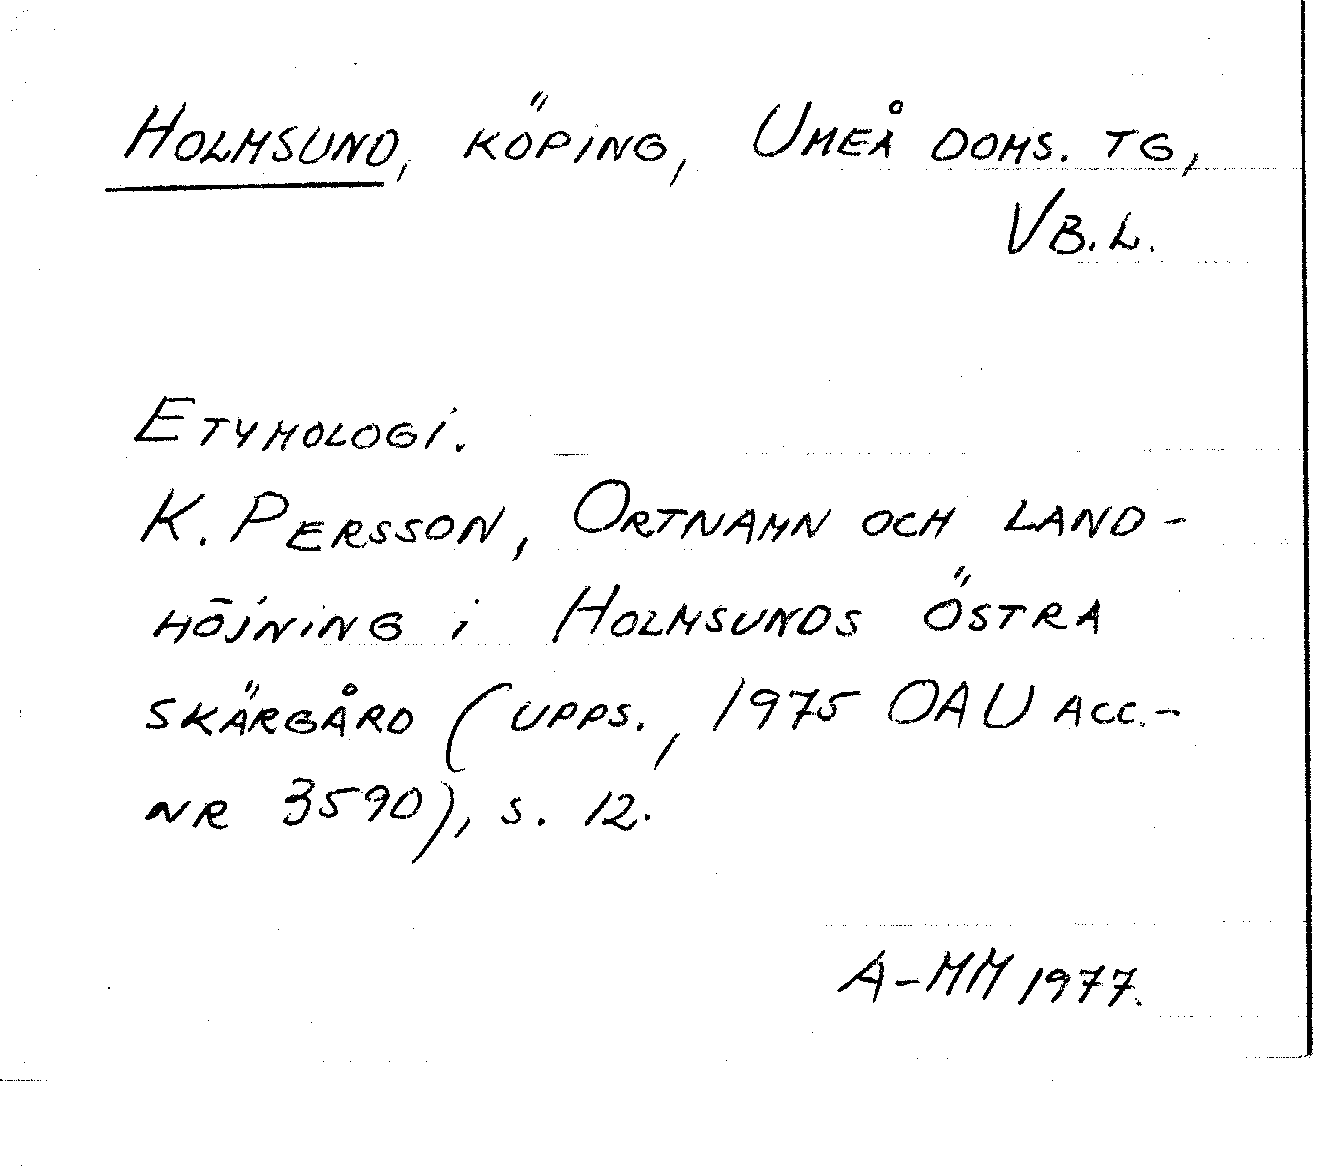 Holmsund, köping, Umeå doms. tg,
Vb.l.
Etymologi.
K. Persson, Ortnamn och land-
höjning i Holmsunds östra
skärgård (upps., 1975 OAU acc.-
nr 3590), s. 12.
A-MM 1977.